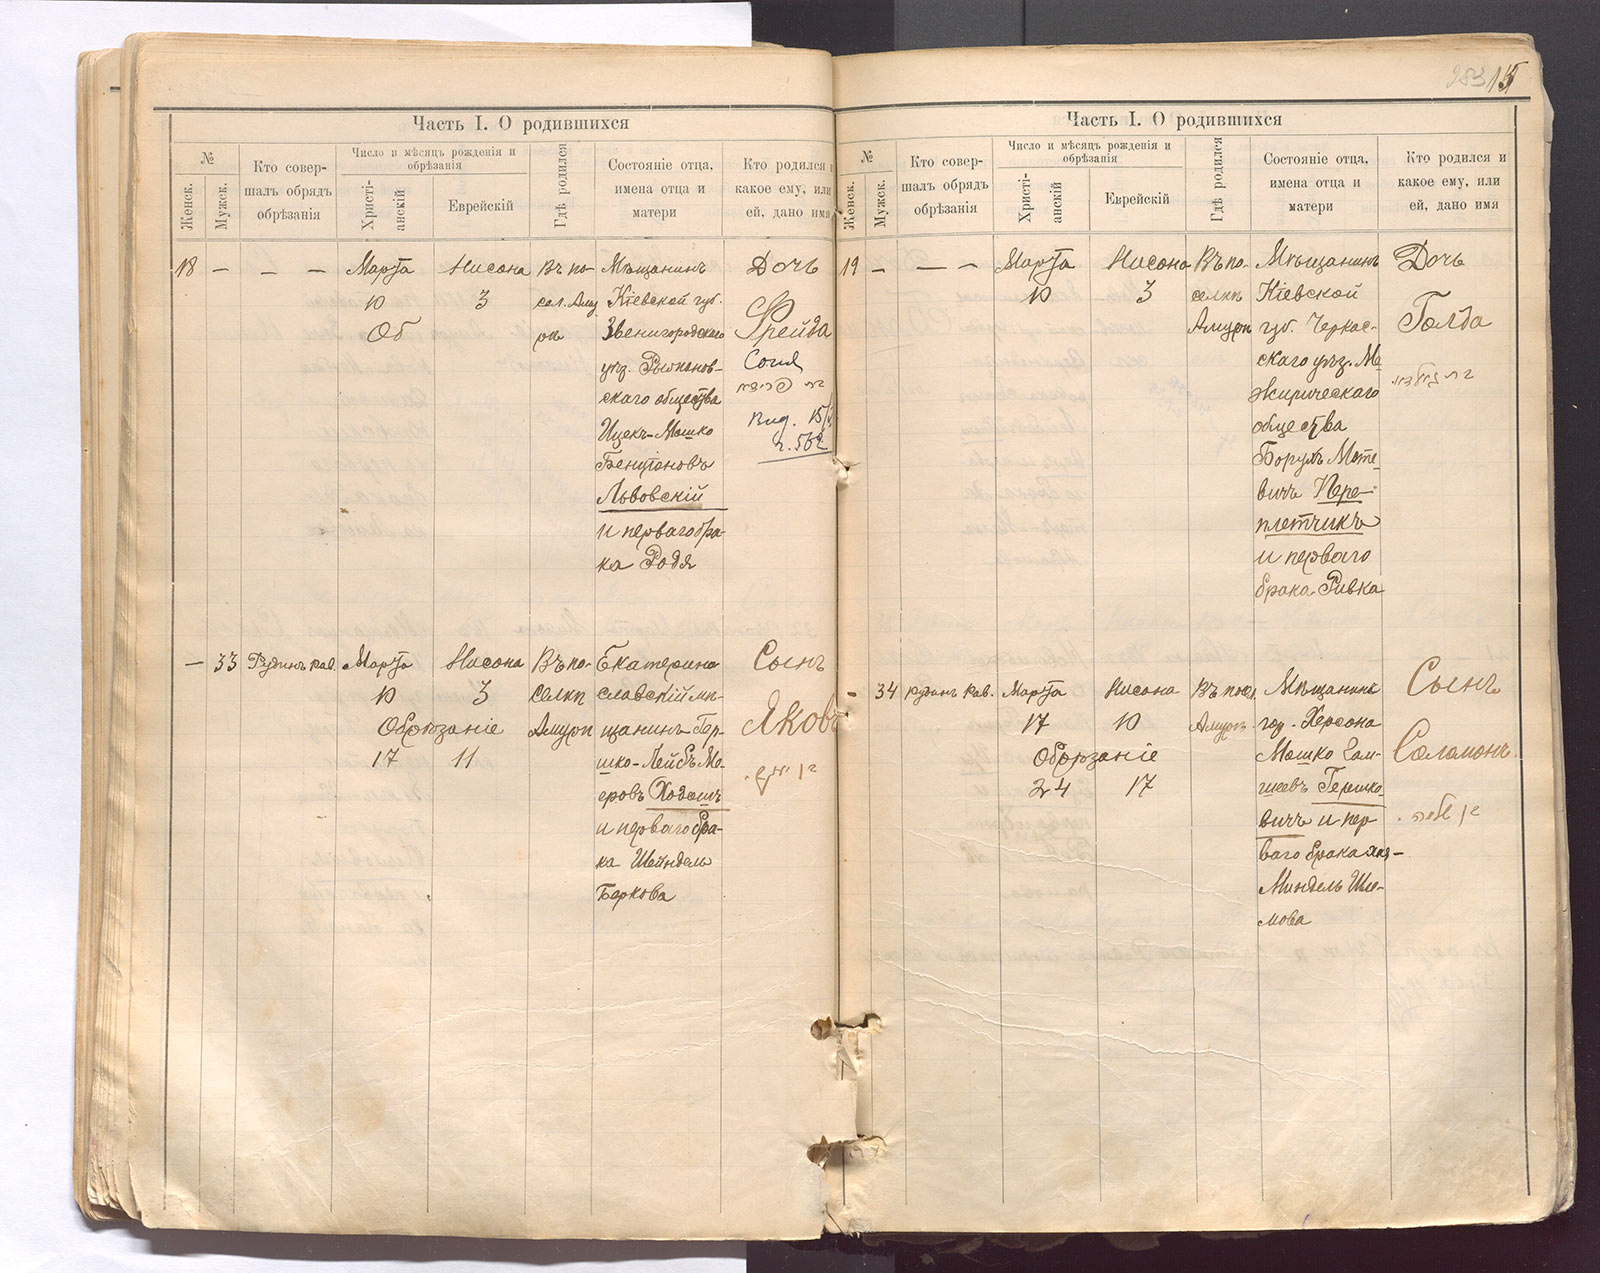 283 15
Часть I. О родившихся
№
Женск.
Мужск.
Кто совер-
шалъ обрядъ
обрѣзанія
Число и мѣсяцъ рожденія и
обрѣзанія
Христі-
анскій
Еврейскій
Гдѣ родился
Состояніе отца,
имена отца и
матери
Кто родился и
какое ему, или
ей, дано имя
18 — — —
Марта
10
Об
Нисона
3
Въ по-
сел. Аму
рѣ
Мѣщанинъ
Кіевской губ.
Звенигородскаго
уѣз. Рыжанов-
скаго общества
Ицекъ-Мошко
Бенціоновъ
Львовскій
и перваго бра-
ка Родя
Дочь
Фрейда
Соня
Вид. 15/
г. 562
— 33
Рудинъ кав.
Марта
10
Обрѣзаніе
17 11
Нисона
3
Въ по-
селкѣ
Амурѣ
Екатерино
славскій мѣ-
щанинъ Гер-
шко-Лейбъ Ме-
еровъ Ходошъ
и перваго бра-
ка Шейндель
Беркова
Сынъ
Яковъ
Часть I. О родившихся
№
Женск.
Мужск.
Кто совер-
шалъ обрядъ
обрѣзанія
Число и мѣсяцъ рожденія и
обрѣзанія
Христі-
анскій
Еврейскій
Гдѣ родился
Состояніе отца,
имена отца и
матери
Кто родился и
какое ему, или
ей, дано имя
19 — — —
Марта
10
Нисона
3
Въ по-
селкѣ
Амурѣ
Мѣщанинъ
Кіевской
губ. Черкас-
скаго уѣз. Ме
жирическаго
общества
Борухъ Моте-
вичъ Пере-
плетчикъ
и перваго
брака Ривка
Дочь
Голда
בת גאלדע
- 34
Рудинъ кав.
Марта
17
Обрѣзаніе
24 17
Нисона
10
Въ посел.
Амурѣ
Мѣщанинъ
гор. Херсона
Мошко Хаи-
Гершко-
вичъ и пер
ваго брака Хая-
Миндель Шле-
мова
Сынъ
Соломонъ.
בן שלמה .